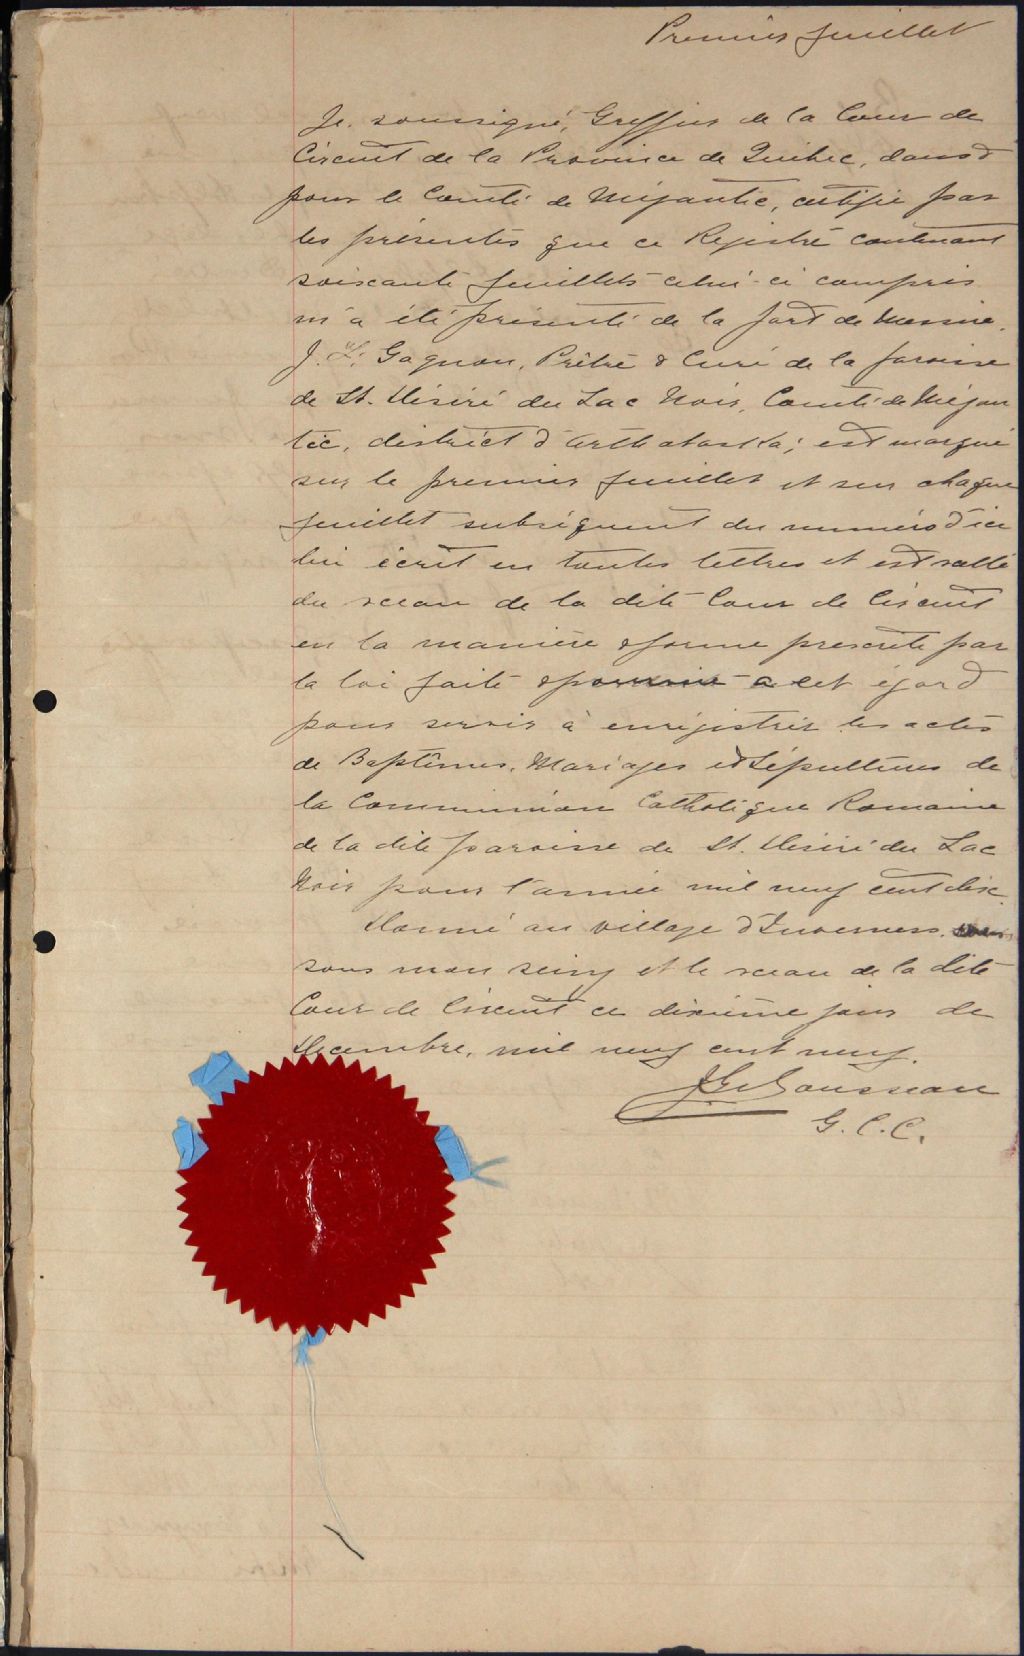 Premier feuillet
Je, soussigné, Greffier de la Cour de
Circuit de la Province de Québec, dans &
pour le Comté de Mégantic, certifie par
les présentes que ce Régistre contenant
soixante feuillets celui-ci compris
m'a été présenté de la part de Messire
J. L. Gagnon, Prêtre & Curé de la paroisse
de St. Désiré du Lac Noir, Comté de Mégan
tic, district d'Arthabaska; est marqué
sur le premier feuillet et sur chaque
feuillet subséquent du numéro d'ice
lui écrit en toutes lettres et est scellé
du sceau de la dite Cour de Circuit
en la manière & forme prescrite par
la loi faite & pourvue à cet égard
pour servir à enrégistrer les actes
de Baptêmes, Mariages et Sépultures de
la Communion Catholique Romaine
de la dite paroisse de St. Désiré du Lac
Noir pour l'année mil neuf cent dix.
Donné au village d'Inverness,
sous mon seing et le sceau de la dite
Cour de Circuit ce dixième jour de
Décembre, mil neuf cent neuf.
Rousseau
G. C. C.